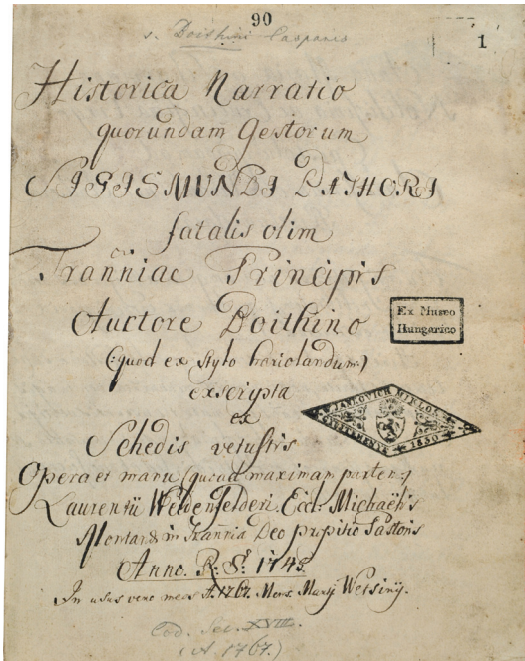 90
s. Doithini Casparis
1
Historica Narratio
quorundam Gestorum
SIGISMUNDI BATHORI
fatalis olim
Trañniae Principis
Auctore Doithino
(:quod ex stylo hariolandum:)
exscripta
ex
Schedis vetustis
Opera et manu (quoad maximam partem:)
Laurentii Weidenfelderi. Eccl: Michaëlis
in Trañnia Deo propitio Pastoris
Anno. R: S: 1743.
In usus vero meos A. 1767. Mens. Martij
Ex Museo
Hungarico
JANKOVICH MIKLOS
GYÜJTEMENYE
1830
Cod. Sec. XVIII.
(A 1767.)